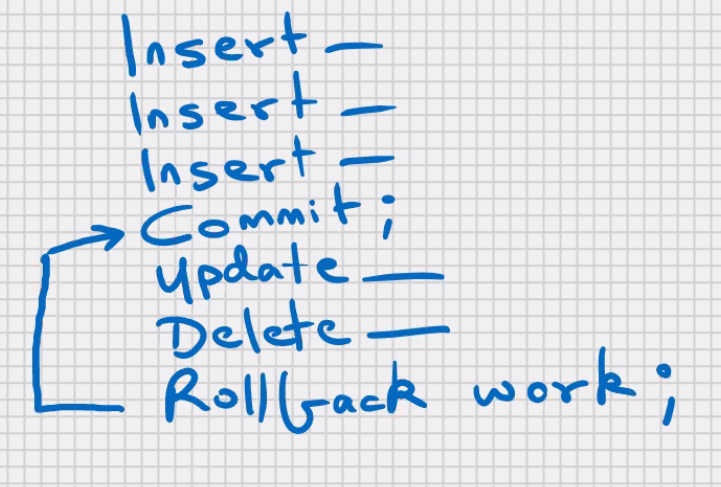 Insert —
Insert —
Insert —
Commit;
Update —
Delete —
Rollback work;